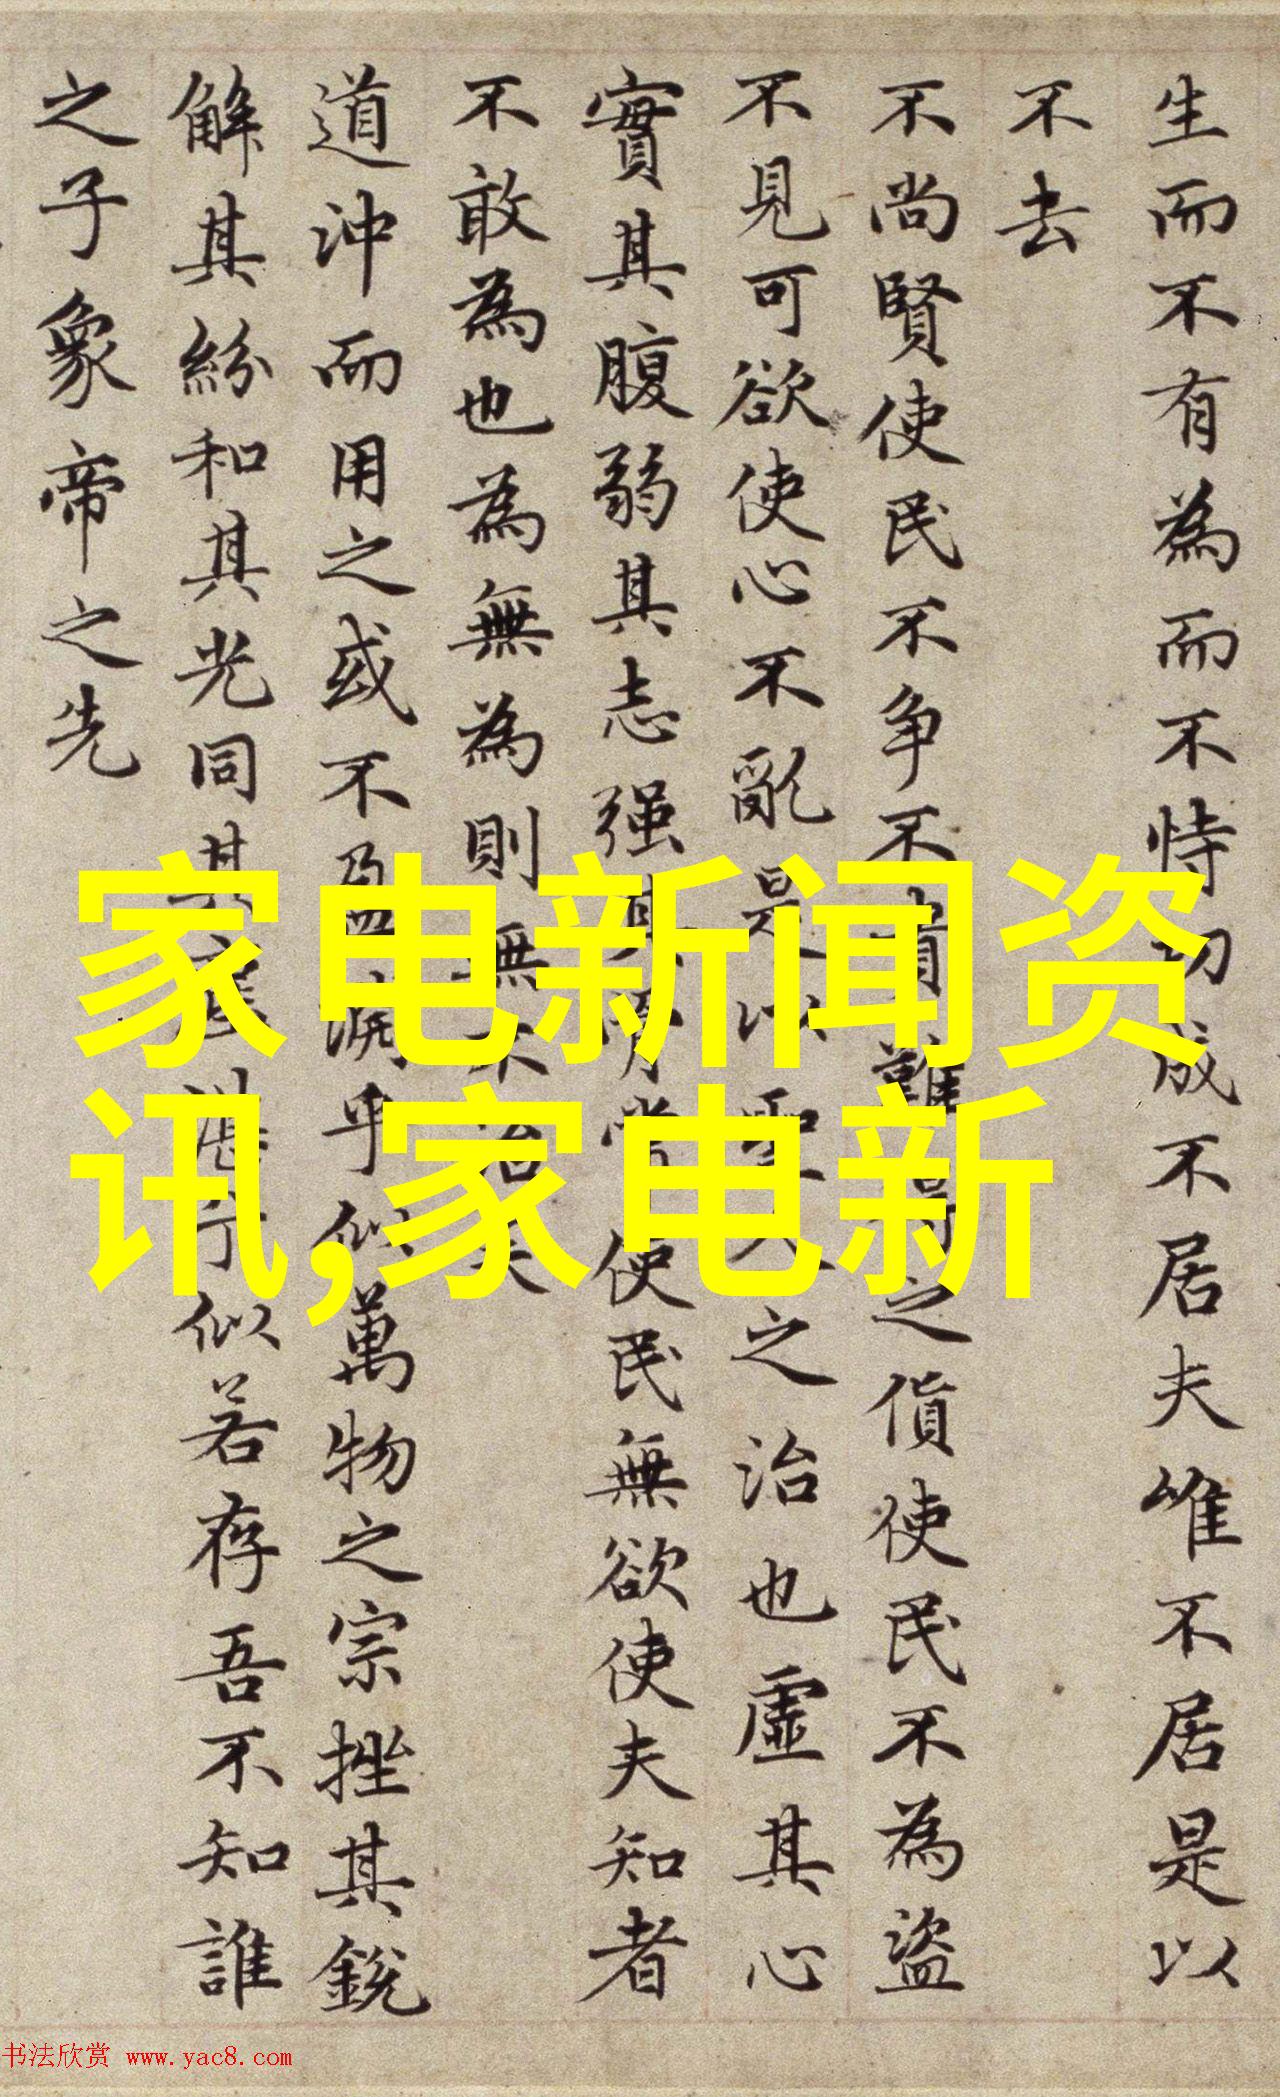 生而不有為而不恃功成不居夫唯不居是以
不去
不尚賢使民不争不貴難得之貨使民不為盜
不見可欲使心不亂是以聖人之治也虛其心
實其腹弱其志强其骨常使民無欲使夫知者
不敢為也為無為則無不治矣
道沖而用之或不盈淵乎似萬物之宗挫其銳
解其紛和其光同其塵湛乎似若存吾不知誰
之子象帝之先
家电新闻资
讯,家电新
书法欣赏 www.yac8.com